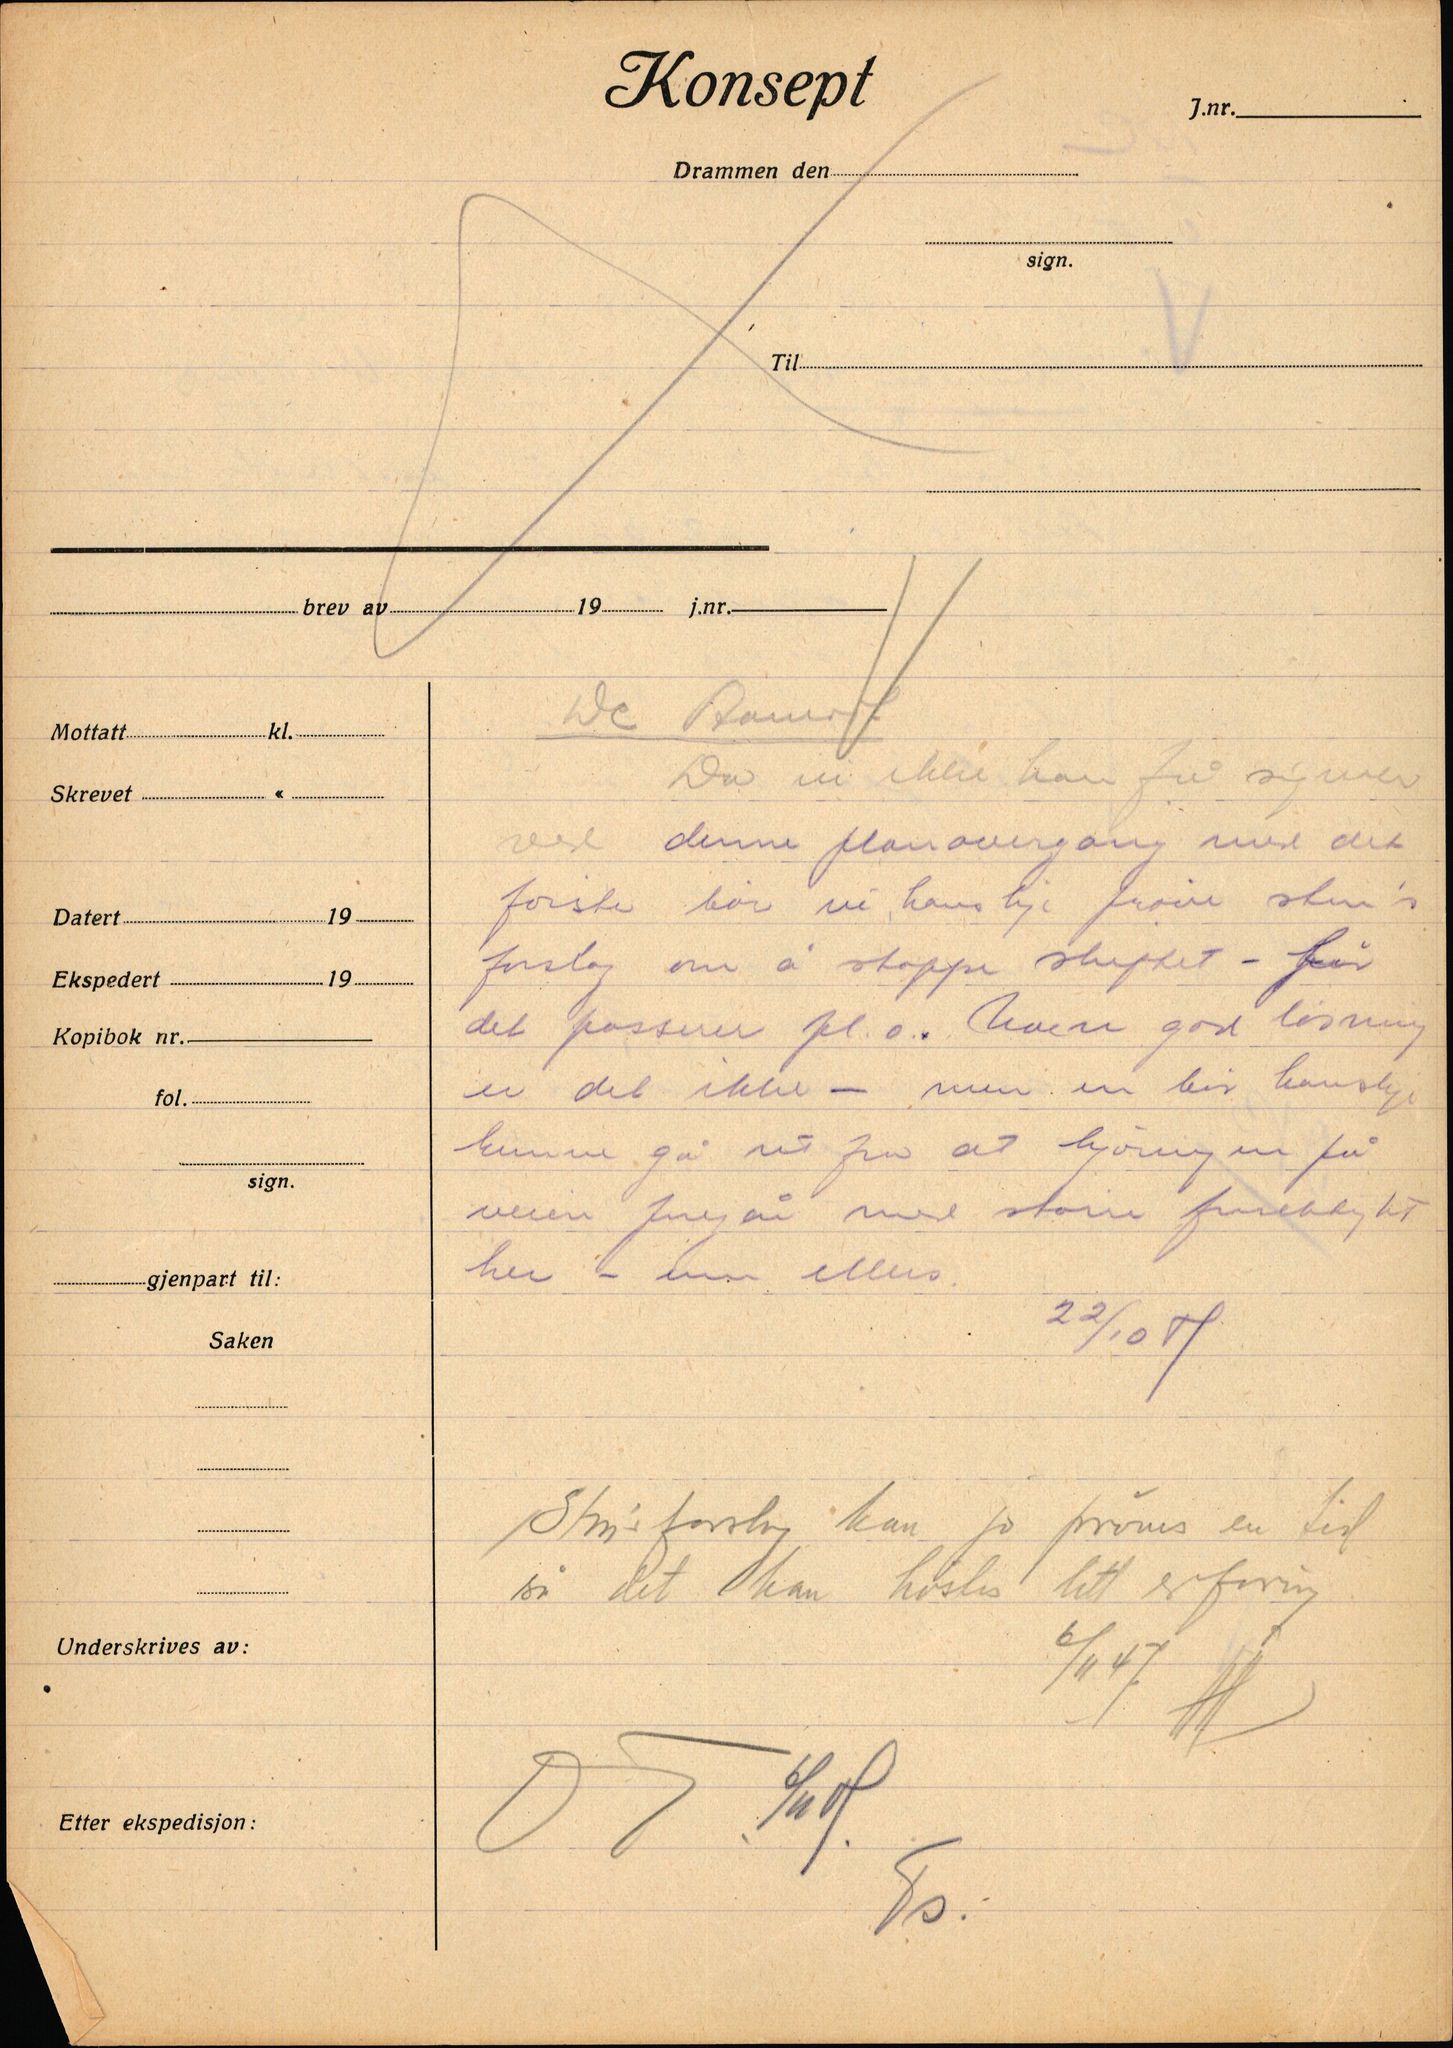 Konsept
J.nr.
Drammen den
sign.
Til
brev av 19 j.nr.
Mottatt kl.
Skrevet «
Datert 19
Ekspedert 19
Kopibok nr.
fol.
sign.
gjenpart til:
Saken
Underskrives av:
Etter ekspedisjon:
Da vi ikke kan få signaler
ved denne planovergang med det
første bør vi kanskje prøve stm's
forslag om å stoppe skiftet - før
det passerer pl.o. Noen god løsning
er det ikke - men en bør kanskje
kunne gå ut fra at kjøringen på
veien foregår med større forsiktighet
her - enn ellers.
22/10
Stm's forslag kan jo prøves en tid
så det kan høstes litt erfaring
6/11 47
6/11